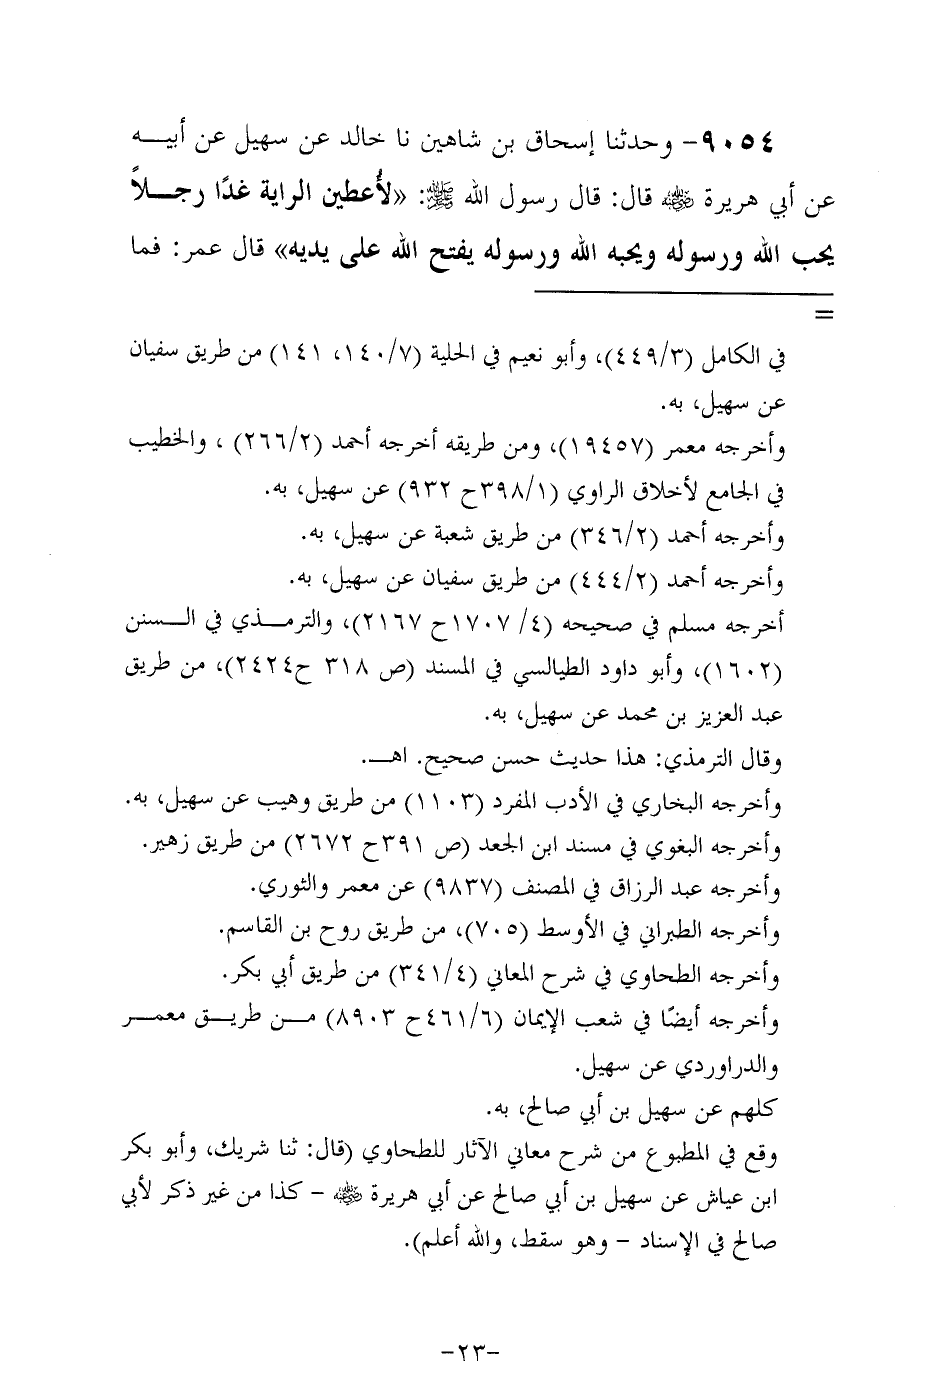 ٩٠٥٤- وحدثنا إسحاق بن شاهين نا خالد عن سهيل عن أبيـــه
عن أبي هريرة ﷺ قال: قال رسول الله ﷺ: «لأُعطين الراية غدًا رجـــلاً
يحب الله ورسوله ويحبه الله ورسوله يفتح الله على يديه» قال عمر: فما
=
في الكامل (٤٤٩/٣)، وأبو نعيم في الحلية (١٤٠/٧، ١٤١) من طريق سفيان
عن سهيل، به.
وأخرجه معمر (١٩٤٥٧)، ومن طريقه أخرجه أحمد (٢٦٦/٢) ، والخطيب
في الجامع لأخلاق الراوي (٣٩٨/١ح ٩٣٢) عن سهيل، به.
وأخرجه أحمد (٣٤٦/٢) من طريق شعبة عن سهيل، به.
وأخرجه أحمد (٤٤٤/٢) من طريق سفيان عن سهيل، به.
أخرجه مسلم في صحيحه (٤/ ١٧٠٧ح ٢١٦٧)، والترمـــذي في الـــسنن
(١٦٠٢)، وأبو داود الطيالسي في المسند (ص ٣١٨ ح٢٤٢٤)، من طريق
عبد العزيز بن محمد عن سهيل، به.
وقال الترمذي: هذا حديث حسن صحيح. اهـــ.
وأخرجه البخاري في الأدب المفرد (١١٠٣) من طريق وهيب عن سهيل، به.
وأخرجه البغوي في مسند ابن الجعد (ص ٣٩١ح ٢٦٧٢) من طريق زهير.
وأخرجه عبد الرزاق في المصنف (٩٨٣٧) عن معمر والثوري.
وأخرجه الطبراني في الأوسط (٧٠٥)، من طريق روح بن القاسم.
وأخرجه الطحاوي في شرح المعاني (٣٤١/٤) من طريق أبي بكر.
وأخرجه أيضًا في شعب الإيمان (٤٦١/٦ح ٨٩٠٣) مـــن طريـــق معمـــر
والدراوردي عن سهيل.
كلهم عن سهيل بن أبي صالح، به.
وقع في المطبوع من شرح معاني الآثار للطحاوي (قال: ثنا شريك، وأبو بكر
ابن عياش عن سهيل بن أبي صالح عن أبي هريرة ﷺ - كذا من غير ذكر لأبي
صالح في الإسناد - وهو سقط، والله أعلم).
-٢٣-